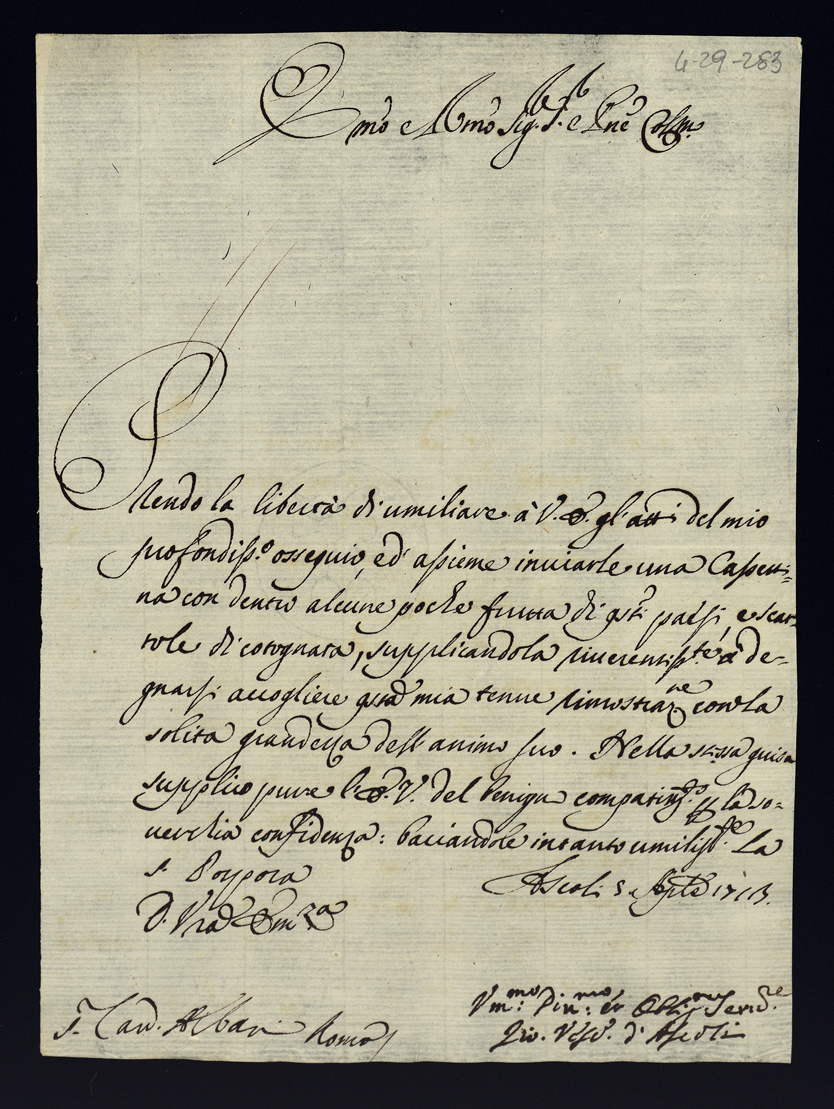 4-29-283
Emõ e Rmõ Sig.r S.r e Pñe Colm.o
Prendo la libertà di umiliare à V. E. gl'atti del mio
profondiss.o ossequio, ed' assieme inviarle una Cassetti=
na con dentro alcune poche frutta di q̃sti paesi, e scat=
tole di cotognata, supplicandola riverentiss.te à de=
gnarsi accogliere q̃sta mia tenue rimostraz.ne con la
solita grandezza dell'animo suo. Nella stessa guisa
supplico pure l'E. V. del benigno compatim.to p la so=
verchia confidenza: baciandole intanto umiliss.te La
S. Porpora
D. Vrã Emza
Ascoli 5 Sptẽ 1713.
S. Card. Albani Roma
Vm.mo Div.mo ed Obl.mo Serv.re
Gio. Vesc.o d'Ascoli